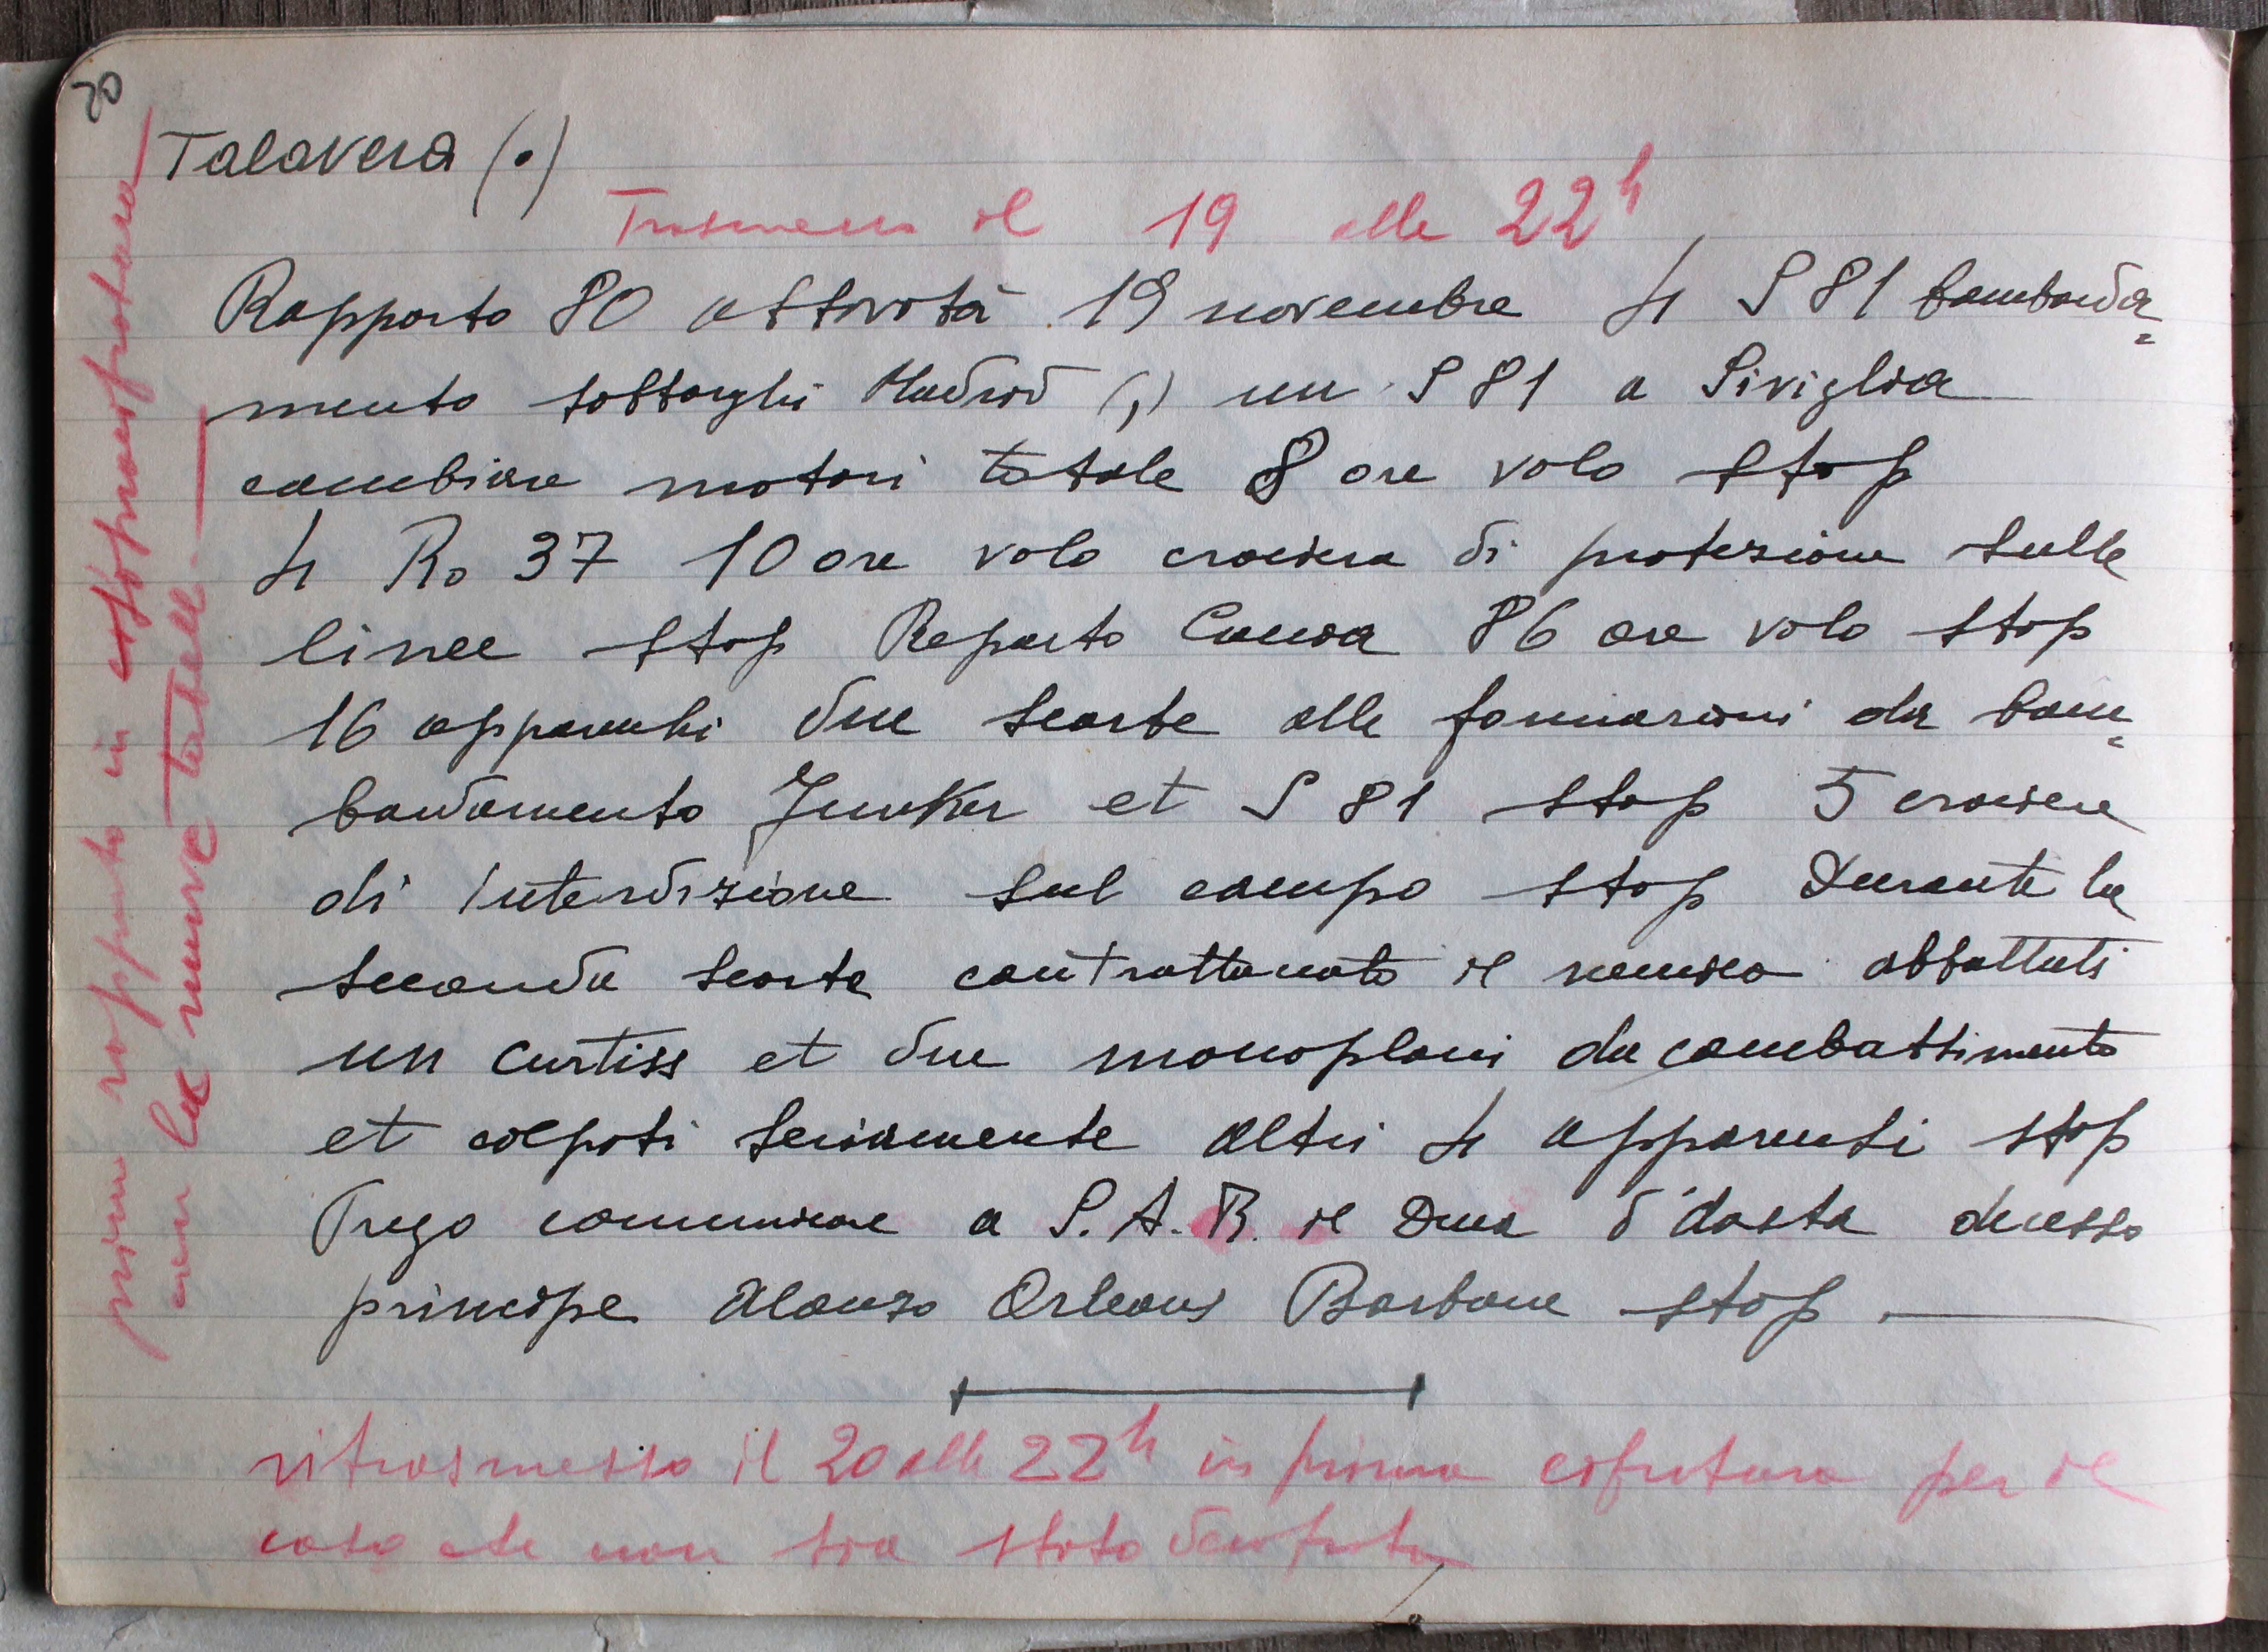 20
Talavera (.)
Trasmesso il 19 alle 22h
Rapporto 80 attività 19 novembre 4 S 81 bombarda=
mento sobborghi Madrid (,) un S 81 a Siviglia
cambiare motori totale 8 ore volo stop
4 Ro 37 10 ore volo crociera di protezione sulle
linee stop Reparto Caccia 86 ore volo stop
16 apparecchi due scorte alle formazioni da bom=
bardamento Junker et S 81 stop 5 crociere
di interdizione sul campo stop Durante la
seconda scorta contrattaccato il nemico abbattuti
un Curtiss et due monoplani da combattimento
et colpiti seriamente altri 4 apparecchi stop
Prego comunicare a S.A.R. il Duca d'Aosta
principe Alonzo Orleans Borbone stop.
ritrasmesso il 20 alle 22h in prima cifratura per il
caso che non sia stato decifrato
primo rapporto in
con la nuova tabella